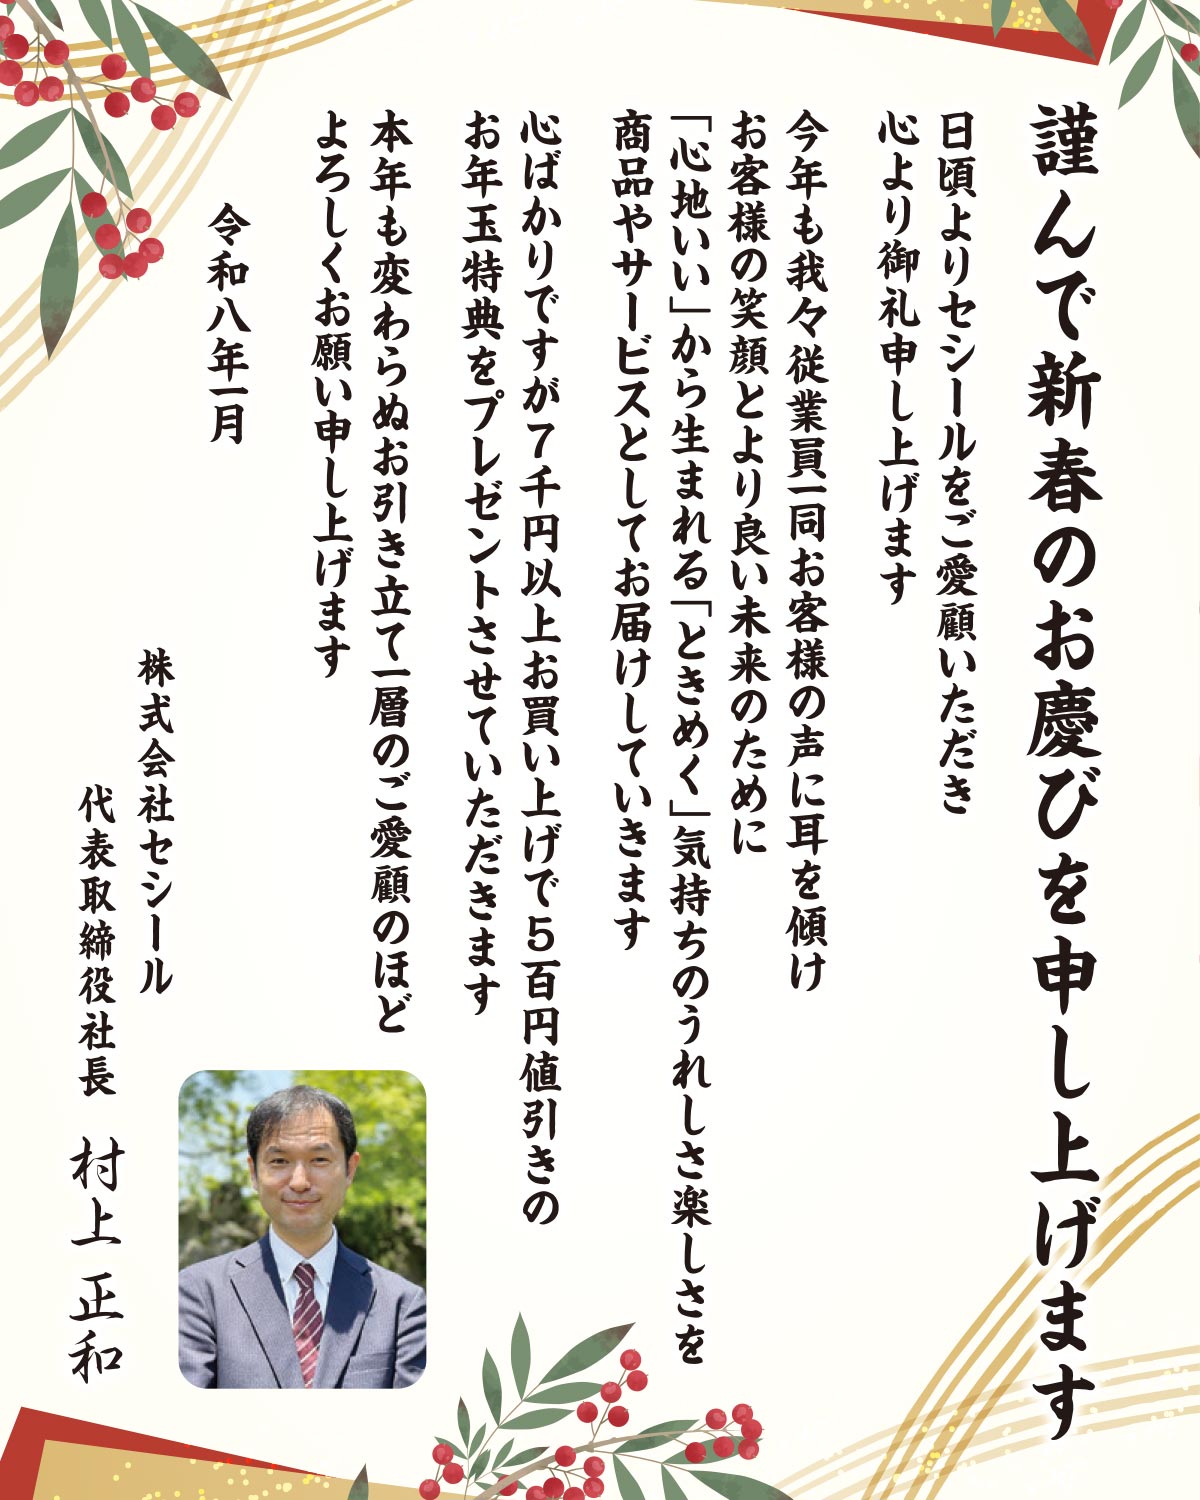 謹んで新春のお慶びを申し上げます
日頃よりセシールをご愛顧いただき
心より御礼申し上げます
今年も我々従業員一同お客様の声に耳を傾け
お客様の笑顔とより良い未来のために
「心地いい」から生まれる「ときめく」気持ちのうれしさ楽しさを
商品やサービスとしてお届けしていきます
心ばかりですが７千円以上お買い上げで５百円値引きの
お年玉特典をプレゼントさせていただきます
本年も変わらぬお引き立て一層のご愛顧のほど
よろしくお願い申し上げます
令和八年一月
株式会社セシール
代表取締役社長 村上 正和